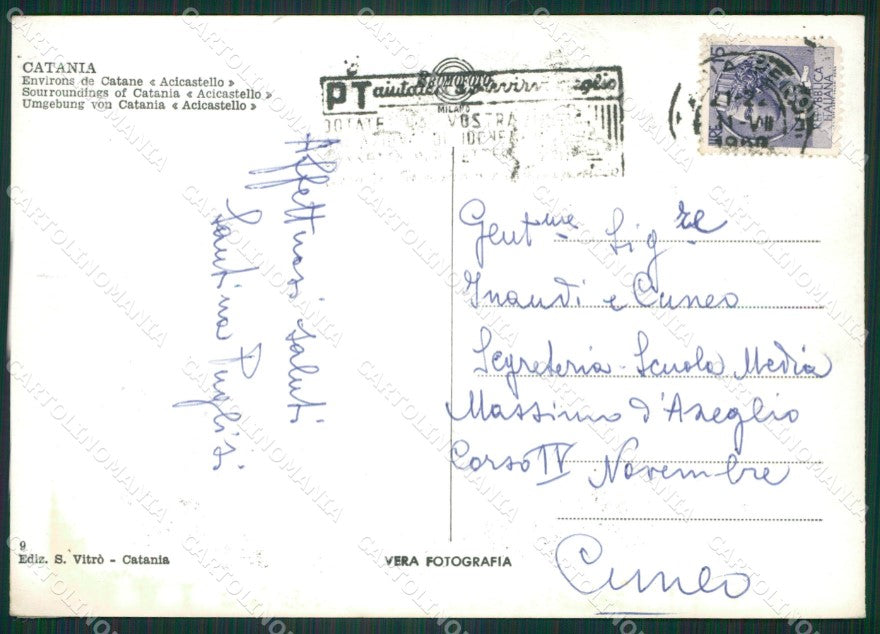 CATANIA
Environs de Catane « Acicastello »
Sourroundings of Catania « Acicastello »
Umgebung von Catania « Acicastello »
PT aiutateci
MILANO
VOSTRA
REPVBBLICA
ITALIANA
Affettuosi saluti
Santina Puglisi
Gent.me Sig.re
Inaudi e Cuneo
Segreteria - Scuola Media
Massimo d'Azeglio
Corso IV Novembre
Cuneo
9
Ediz. S. Vitrò - Catania
VERA FOTOGRAFIA
CARTOLINOMANIA